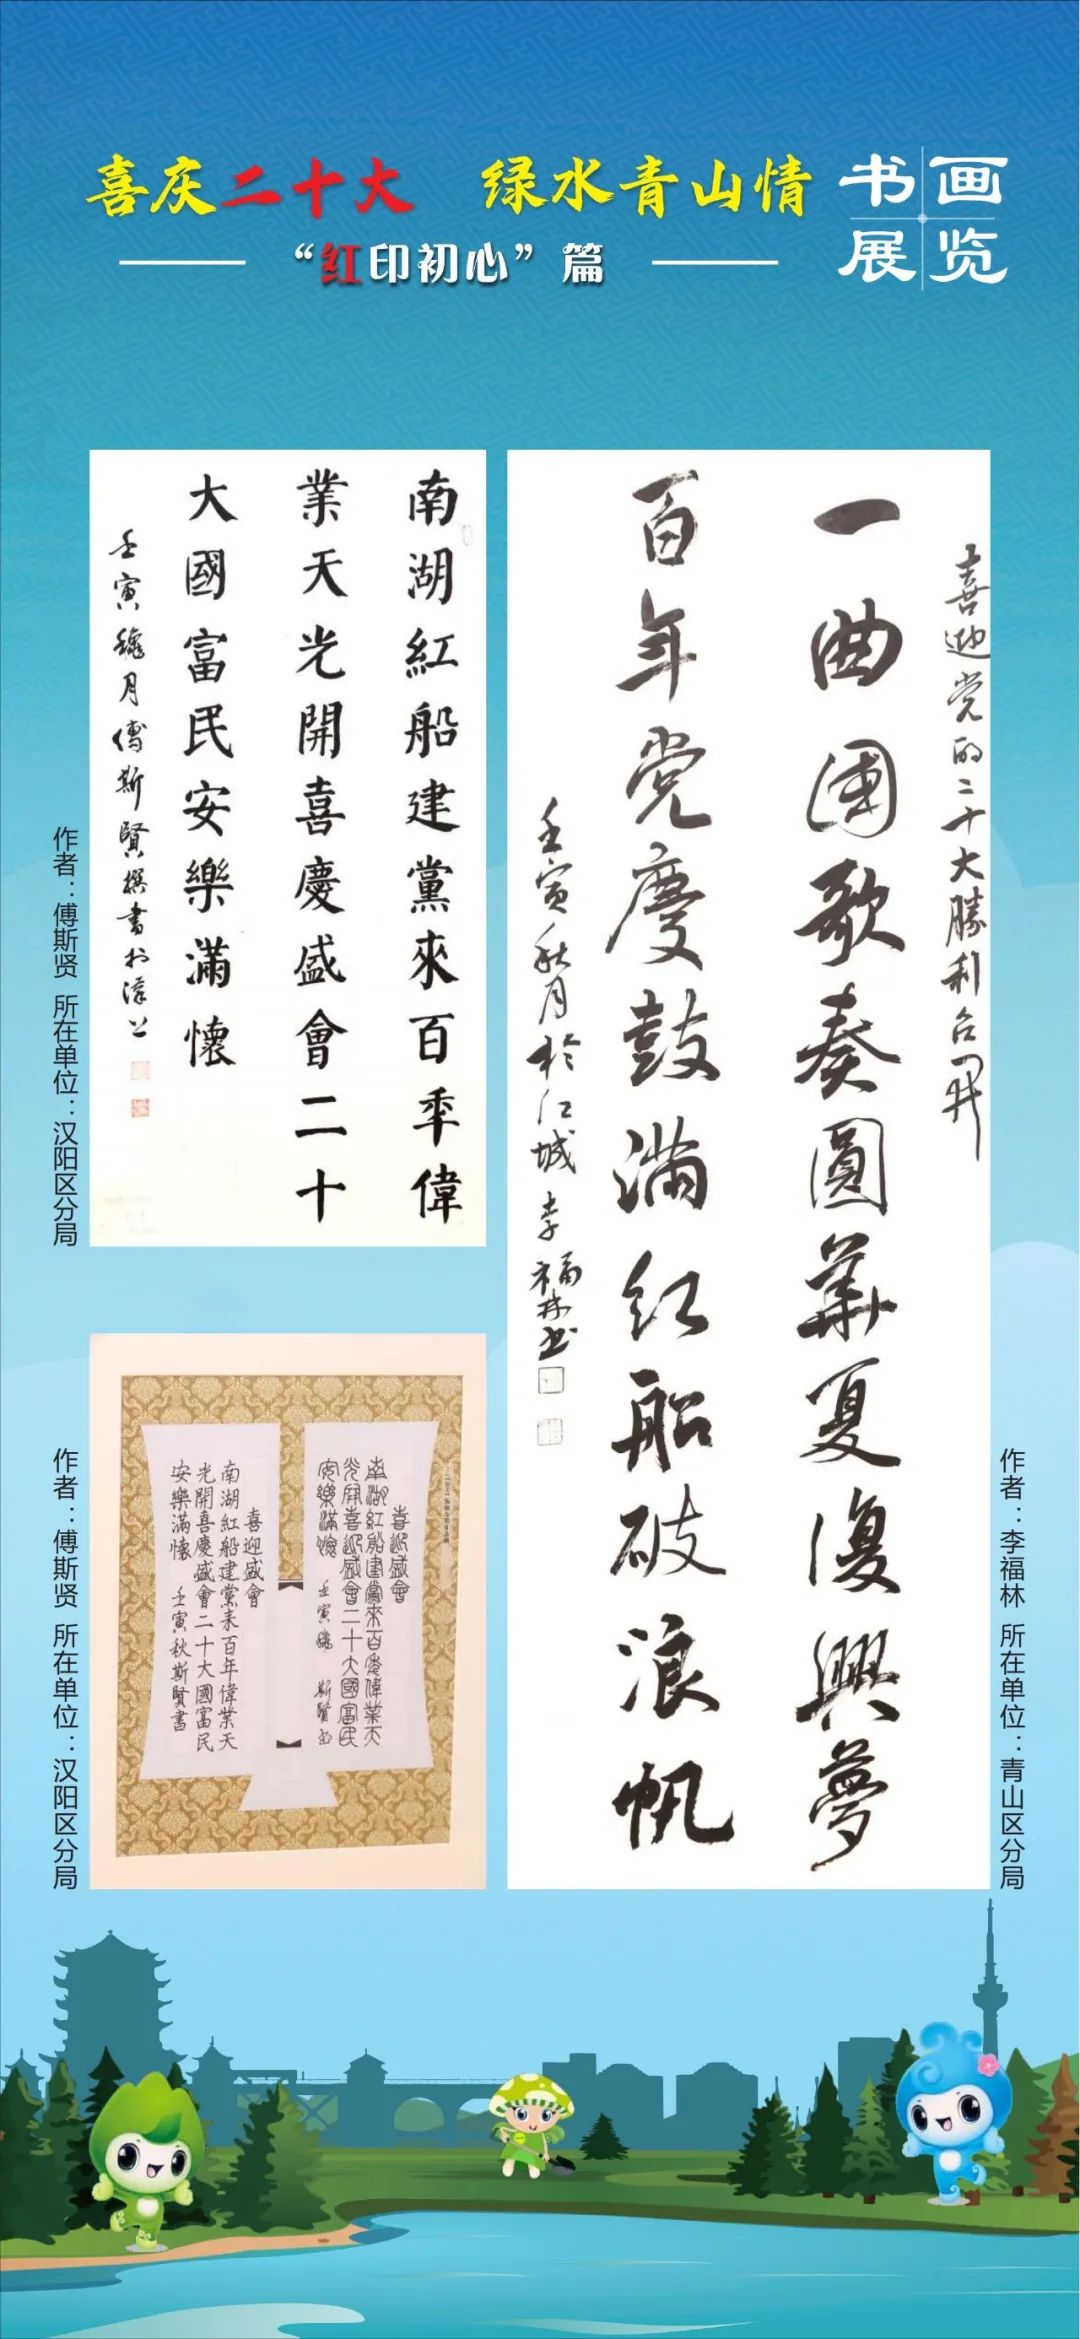 喜庆二十大 绿水青山情
书画
展览
“红印初心”篇
南湖紅船建黨來百年偉
業天光開喜慶盛會二十
大國富民安樂滿懷
壬寅穐月傅斯賢撰書於漢上
作者：傅斯贤 所在单位：汉阳区分局
喜迎党的二十大勝利召開
一曲国歌奏圓華夏復興夢
百年党慶鼓滿红船破浪帆
壬寅秋月於江城李福林书
作者：李福林 所在单位：青山区分局
喜迎盛會
南湖紅船建黨来百年偉業天
光開喜迎盛會二十大國富民
安樂滿懷 壬寅穐 斯賢书
喜迎盛會
南湖紅船建黨来百年偉業天
光開喜慶盛會二十大國富民
安樂滿懷 壬寅秋斯賢書
作者：傅斯贤 所在单位：汉阳区分局